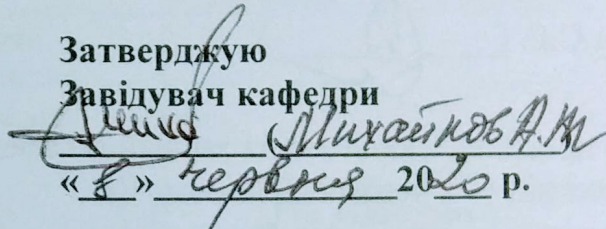 Затверджую
Завідувач кафедри
(Михайлов А.М.
« 8 » червня 2020 р.